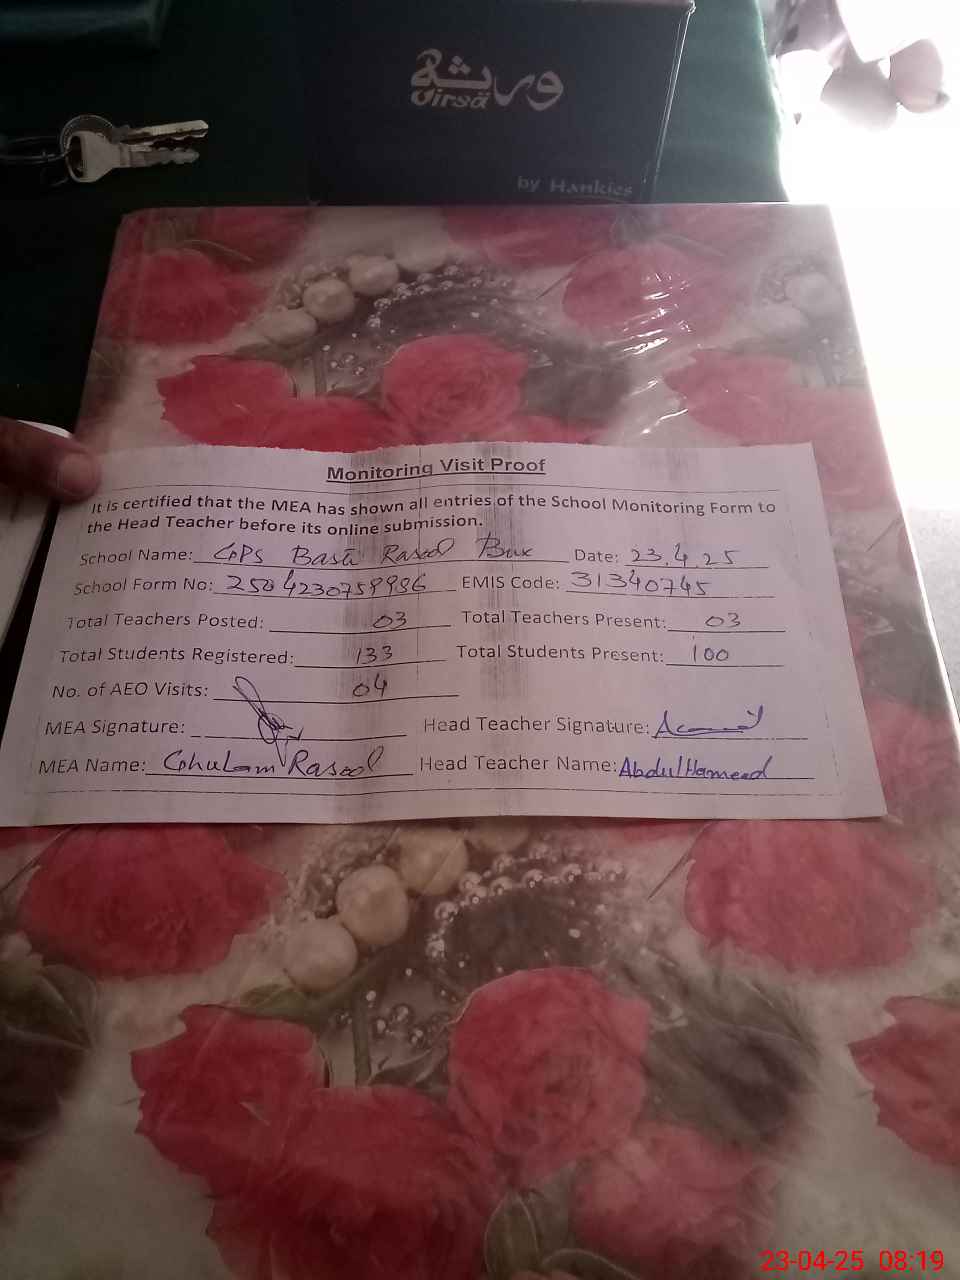 ورثہ
Virsa
by Hankies
Monitoring Visit Proof
It is certified that the MEA has shown all entries of the School Monitoring Form to
the Head Teacher before its online submission.
School Name: GPS Basti Rasool Bux Date: 23.4.25
School Form No: EMIS Code: 31340745
Total Teachers Posted: 03 Total Teachers Present: 03
Total Students Registered: 133 Total Students Present: 100
No. of AEO Visits: 04
MEA Signature: Head Teacher Signature:
MEA Name: Ghulam Rasool Head Teacher Name: Abdul Hameed
23-04-25 08:19